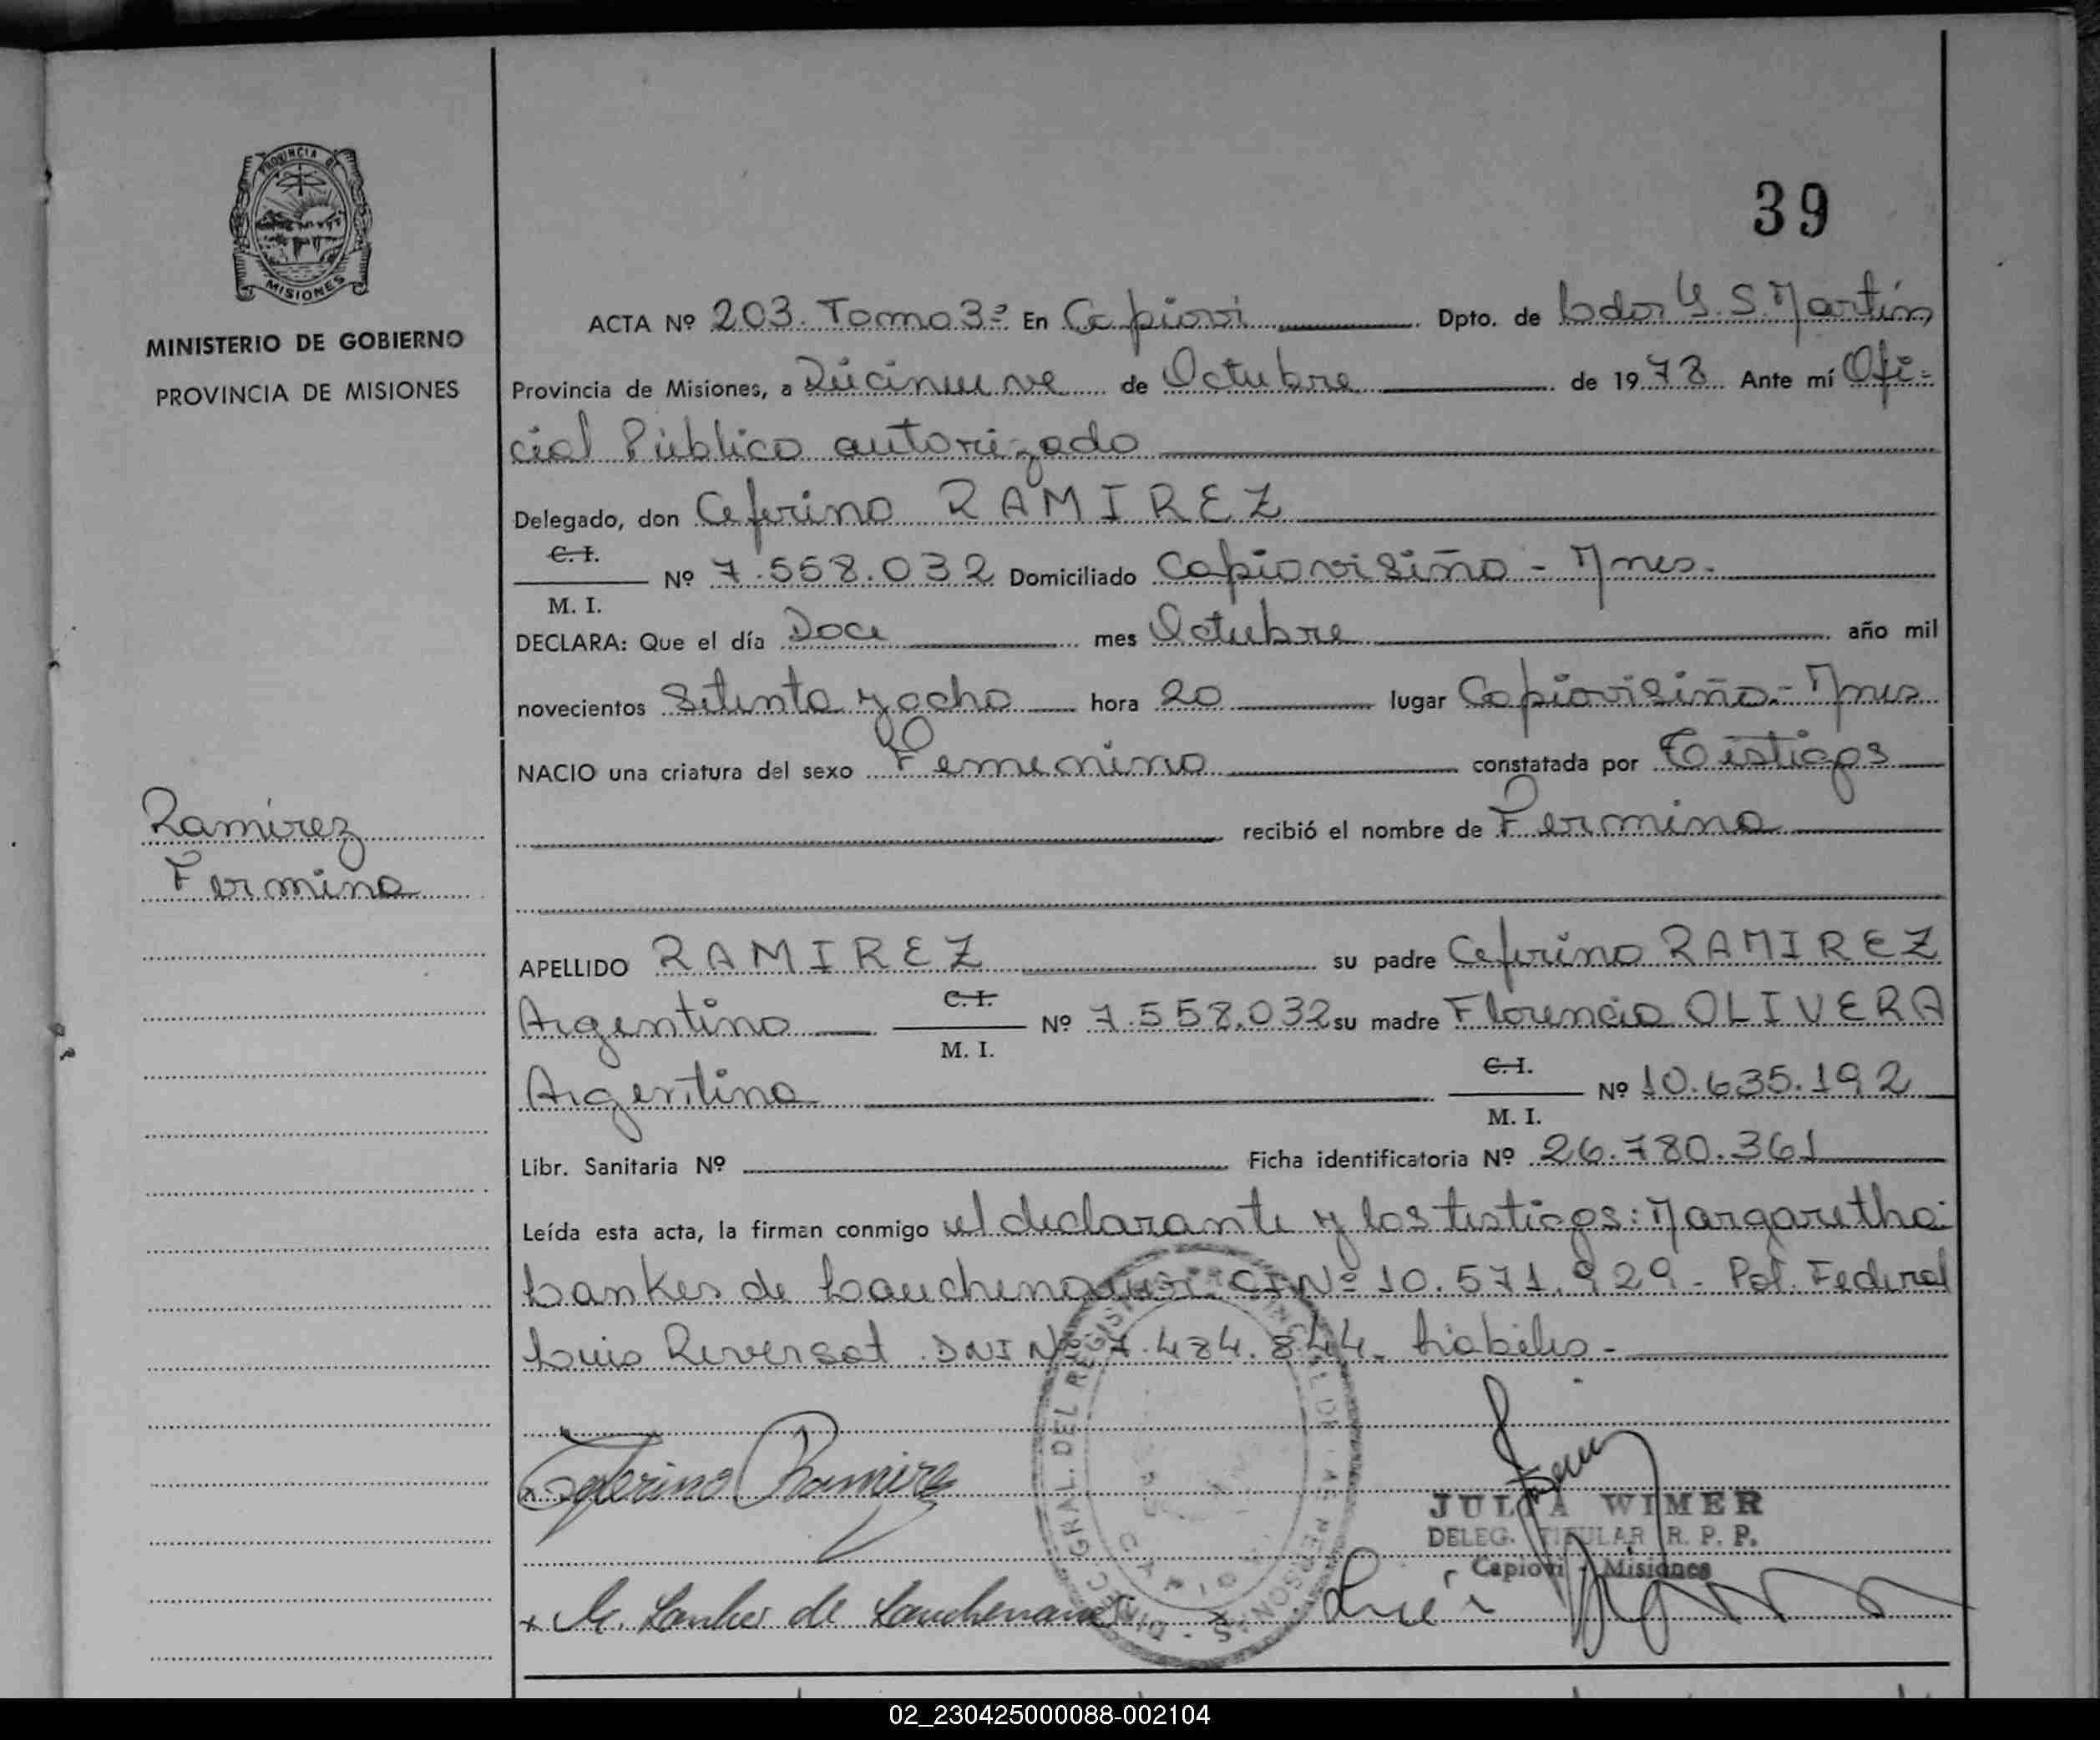 PROVINCIA DE
MISIONES
MINISTERIO DE GOBIERNO
PROVINCIA DE MISIONES
Ramirez
Fermina
39
ACTA Nº 203. Tomo 3º En Capiovi Dpto. de Ldor G. S. Martín
Provincia de Misiones, a Diecinueve de Octubre de 1978 Ante mí Ofi-
cial Público autorizado
Delegado, don Ceferino RAMIREZ
C. I.
Nº 7.558.032 Domiciliado Capiovisiño - Mnes.
M. I.
DECLARA: Que el día Doce mes Octubre año mil
novecientos Setenta y ocho hora 20 lugar Capiovisiño - Mnes
NACIO una criatura del sexo Femenino constatada por Testigos
recibió el nombre de Fermina
APELLIDO RAMIREZ su padre Ceferino RAMIREZ
C. I.
Argentino Nº 7.558.032 su madre Florencia OLIVERA
M. I.
C. I.
Argentina Nº 10.635.192
M. I.
Libr. Sanitaria Nº Ficha identificatoria Nº 26.780.361
Leída esta acta, la firman conmigo el declarante y los testigos: Margaretha
Lankes de CI Nº 10.571.929 - Pol. Federal
Luis Reversat DNI Nº 7.484.844 - hábiles -
DIREC. GRAL. DEL REGISTRO PROVINCIAL DE LAS PERSONAS
Ceferino Ramirez
JULIA WIMER
DELEG. TITULAR R. P. P.
Capioví - Misiones
x M. Lankes de
Luis
02_230425000088-002104